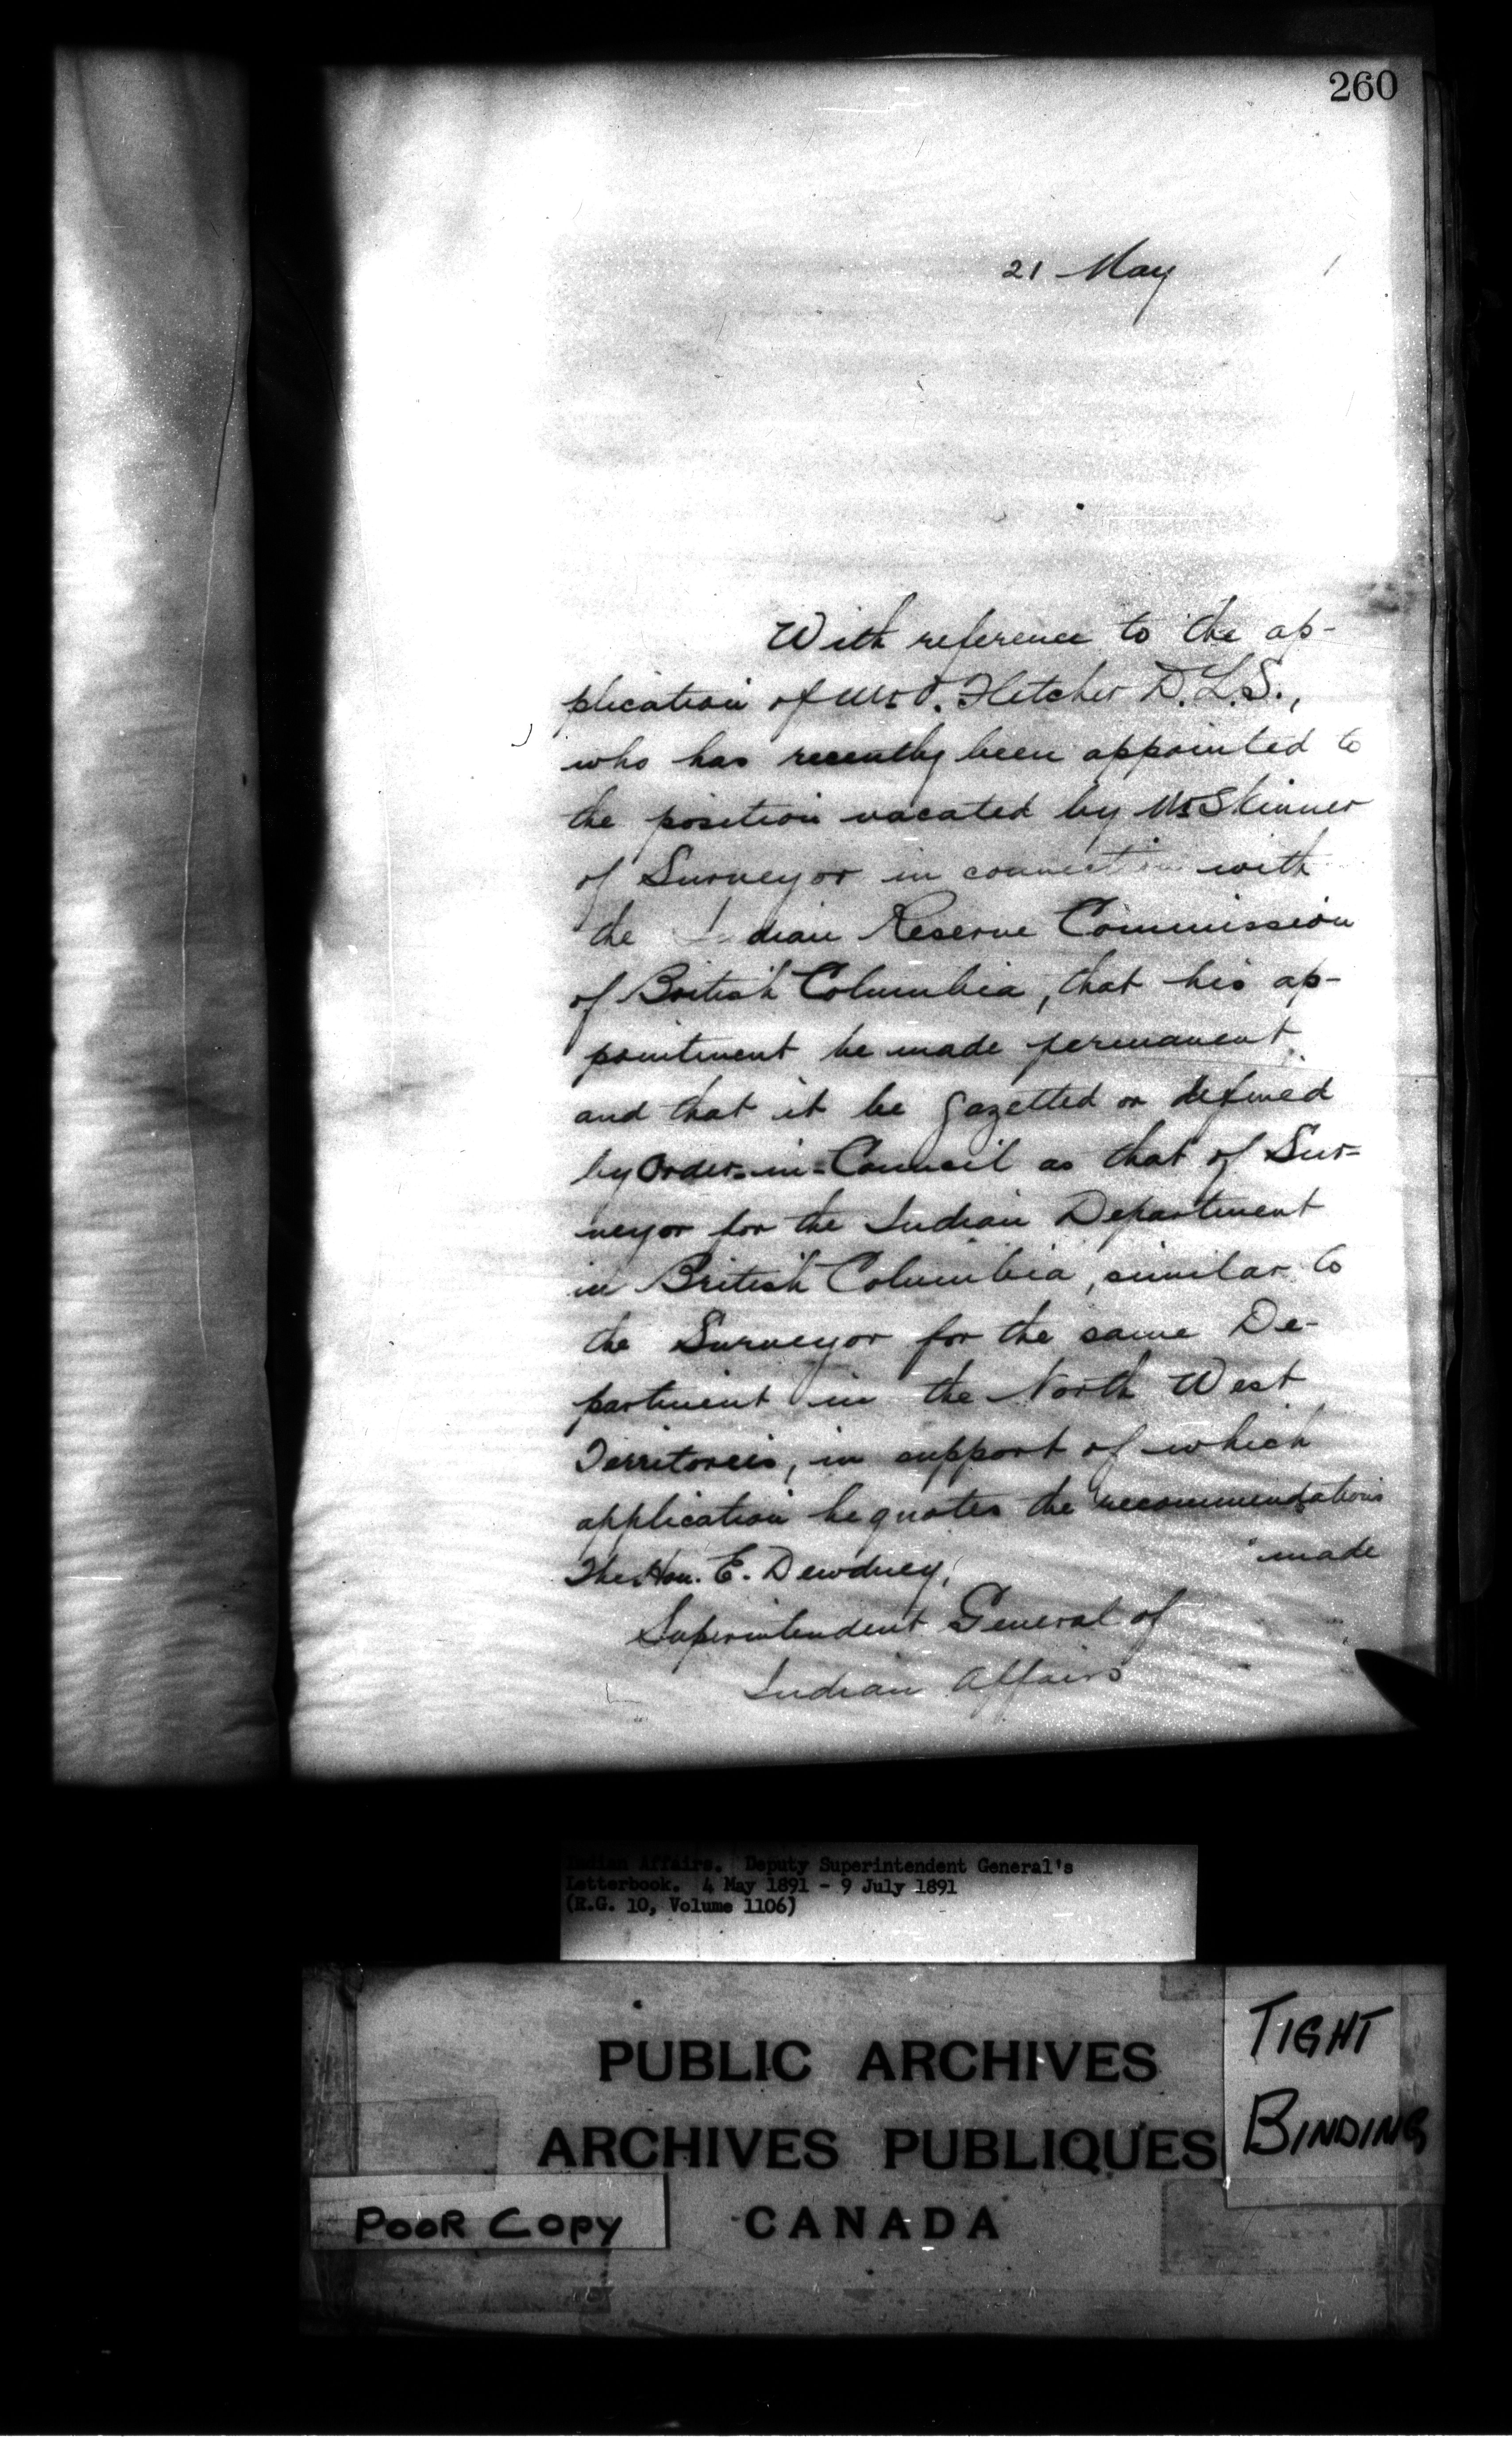 260
21 May 1
With reference to the ap-
plication of Mr O. Fletcher D.L.S.,
who has recently been appointed to
the position vacated by Mr Skinner
of Surveyor in connection with
the Indian Reserve Commission
of British Columbia, that his ap-
pointment be made permanent
and that it be gazetted or defined
by Order-in-Council as that of Sur-
veyor for the Indian Department
in British Columbia, similar to
the Surveyor for the same De-
partment in the North West
Territories, in support of which
application he quotes the recommendations
made
The Hon. E. Dewdney,
Superintendent General of
Indian Affairs
Indian Affairs. Deputy Superintendent General's
Letterbook. 4 May 1891 - 9 July 1891
(R.G. 10, Volume 1106)
PUBLIC ARCHIVES
ARCHIVES PUBLIQUES
CANADA
TIGHT
BINDING
POOR COPY